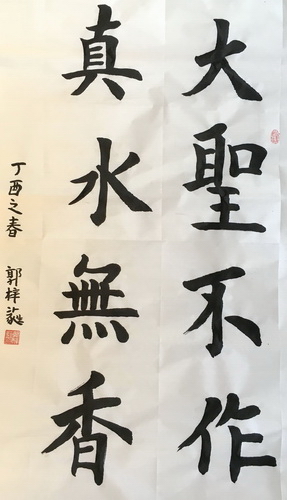 大聖不作
真水無香
丁酉之春 郭梓誕